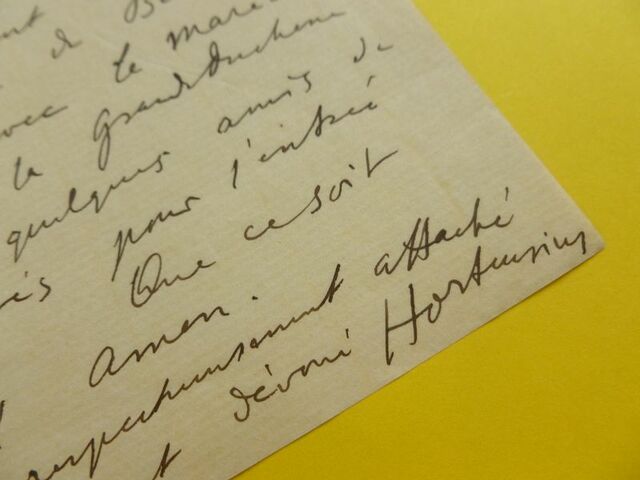 de
avec le
la Grandduchesse
quelques amis de
pour l'entrée
Que ce soit
amen.
respectueusement attaché
et dévoué Hortensius